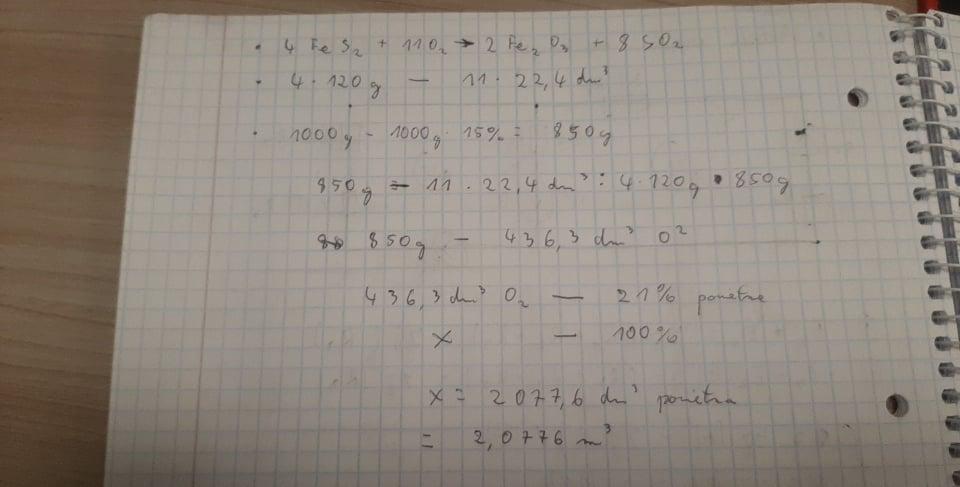 • 4 FeS₂ + 11O₂ → 2 Fe₂O₃ + 8SO₂
• 4·120g — 11·22,4 dm³
• 1000g - 1000g·15% = 850g
850g = 11·22,4 dm³ : 4·120g · 850g
850g — 436,3 dm³ O²
436,3 dm³ O₂ — 21% powietrze
x — 100%
x = 2077,6 dm³ powietrza
= 2,0776 m³